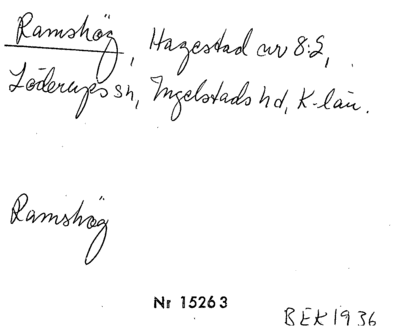 Ramshög, Hagestad nr 8:2,
Löderups sn, Ingelstads hd, K-län.
Ramshög
Nr 15263
BEK1936